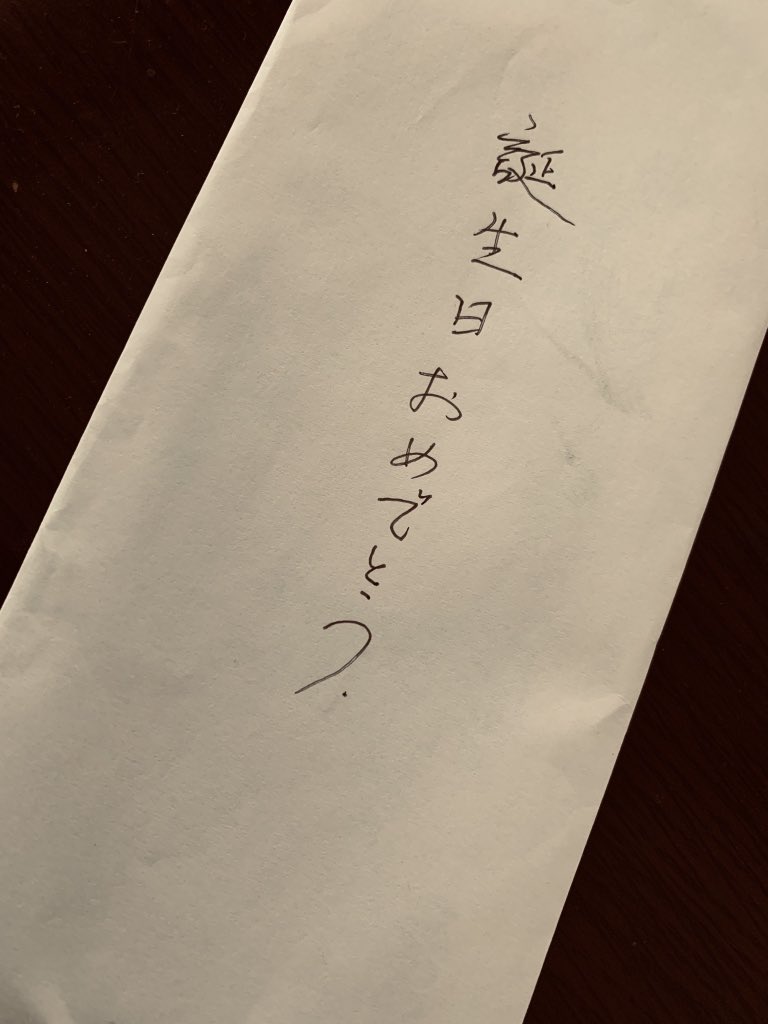 誕生日おめでとう.